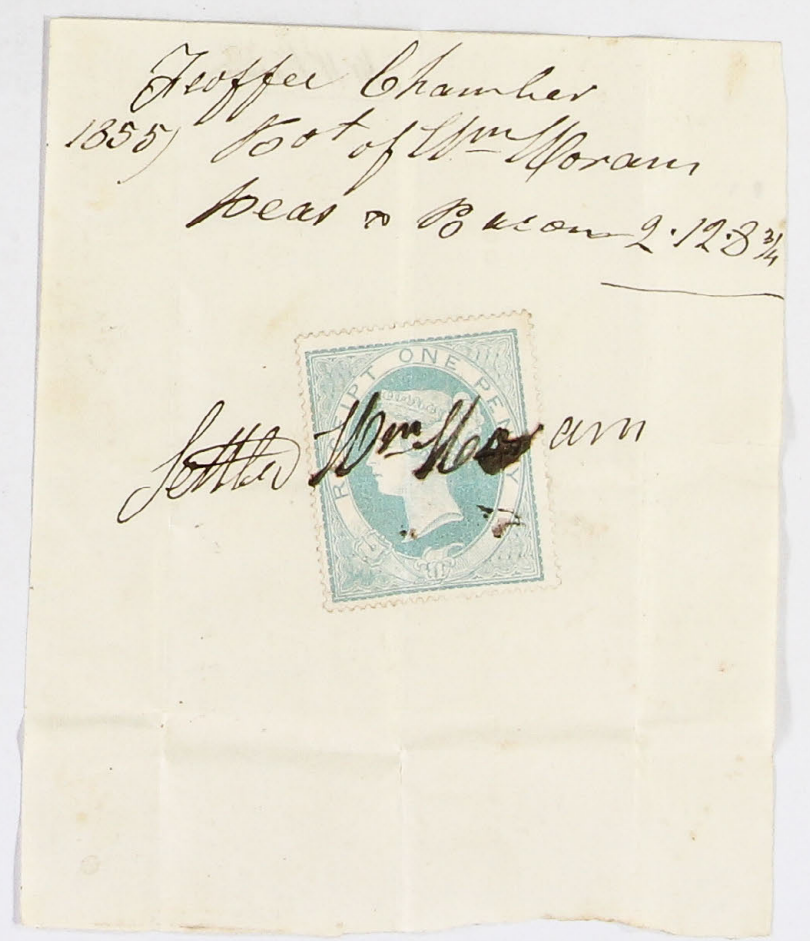 Feoffee Chamber
1855) Bot of Wm Moram
Peas & Bacon 2.12.8 3/4
RECEIPT ONE PENNY
Settled Wm Moram